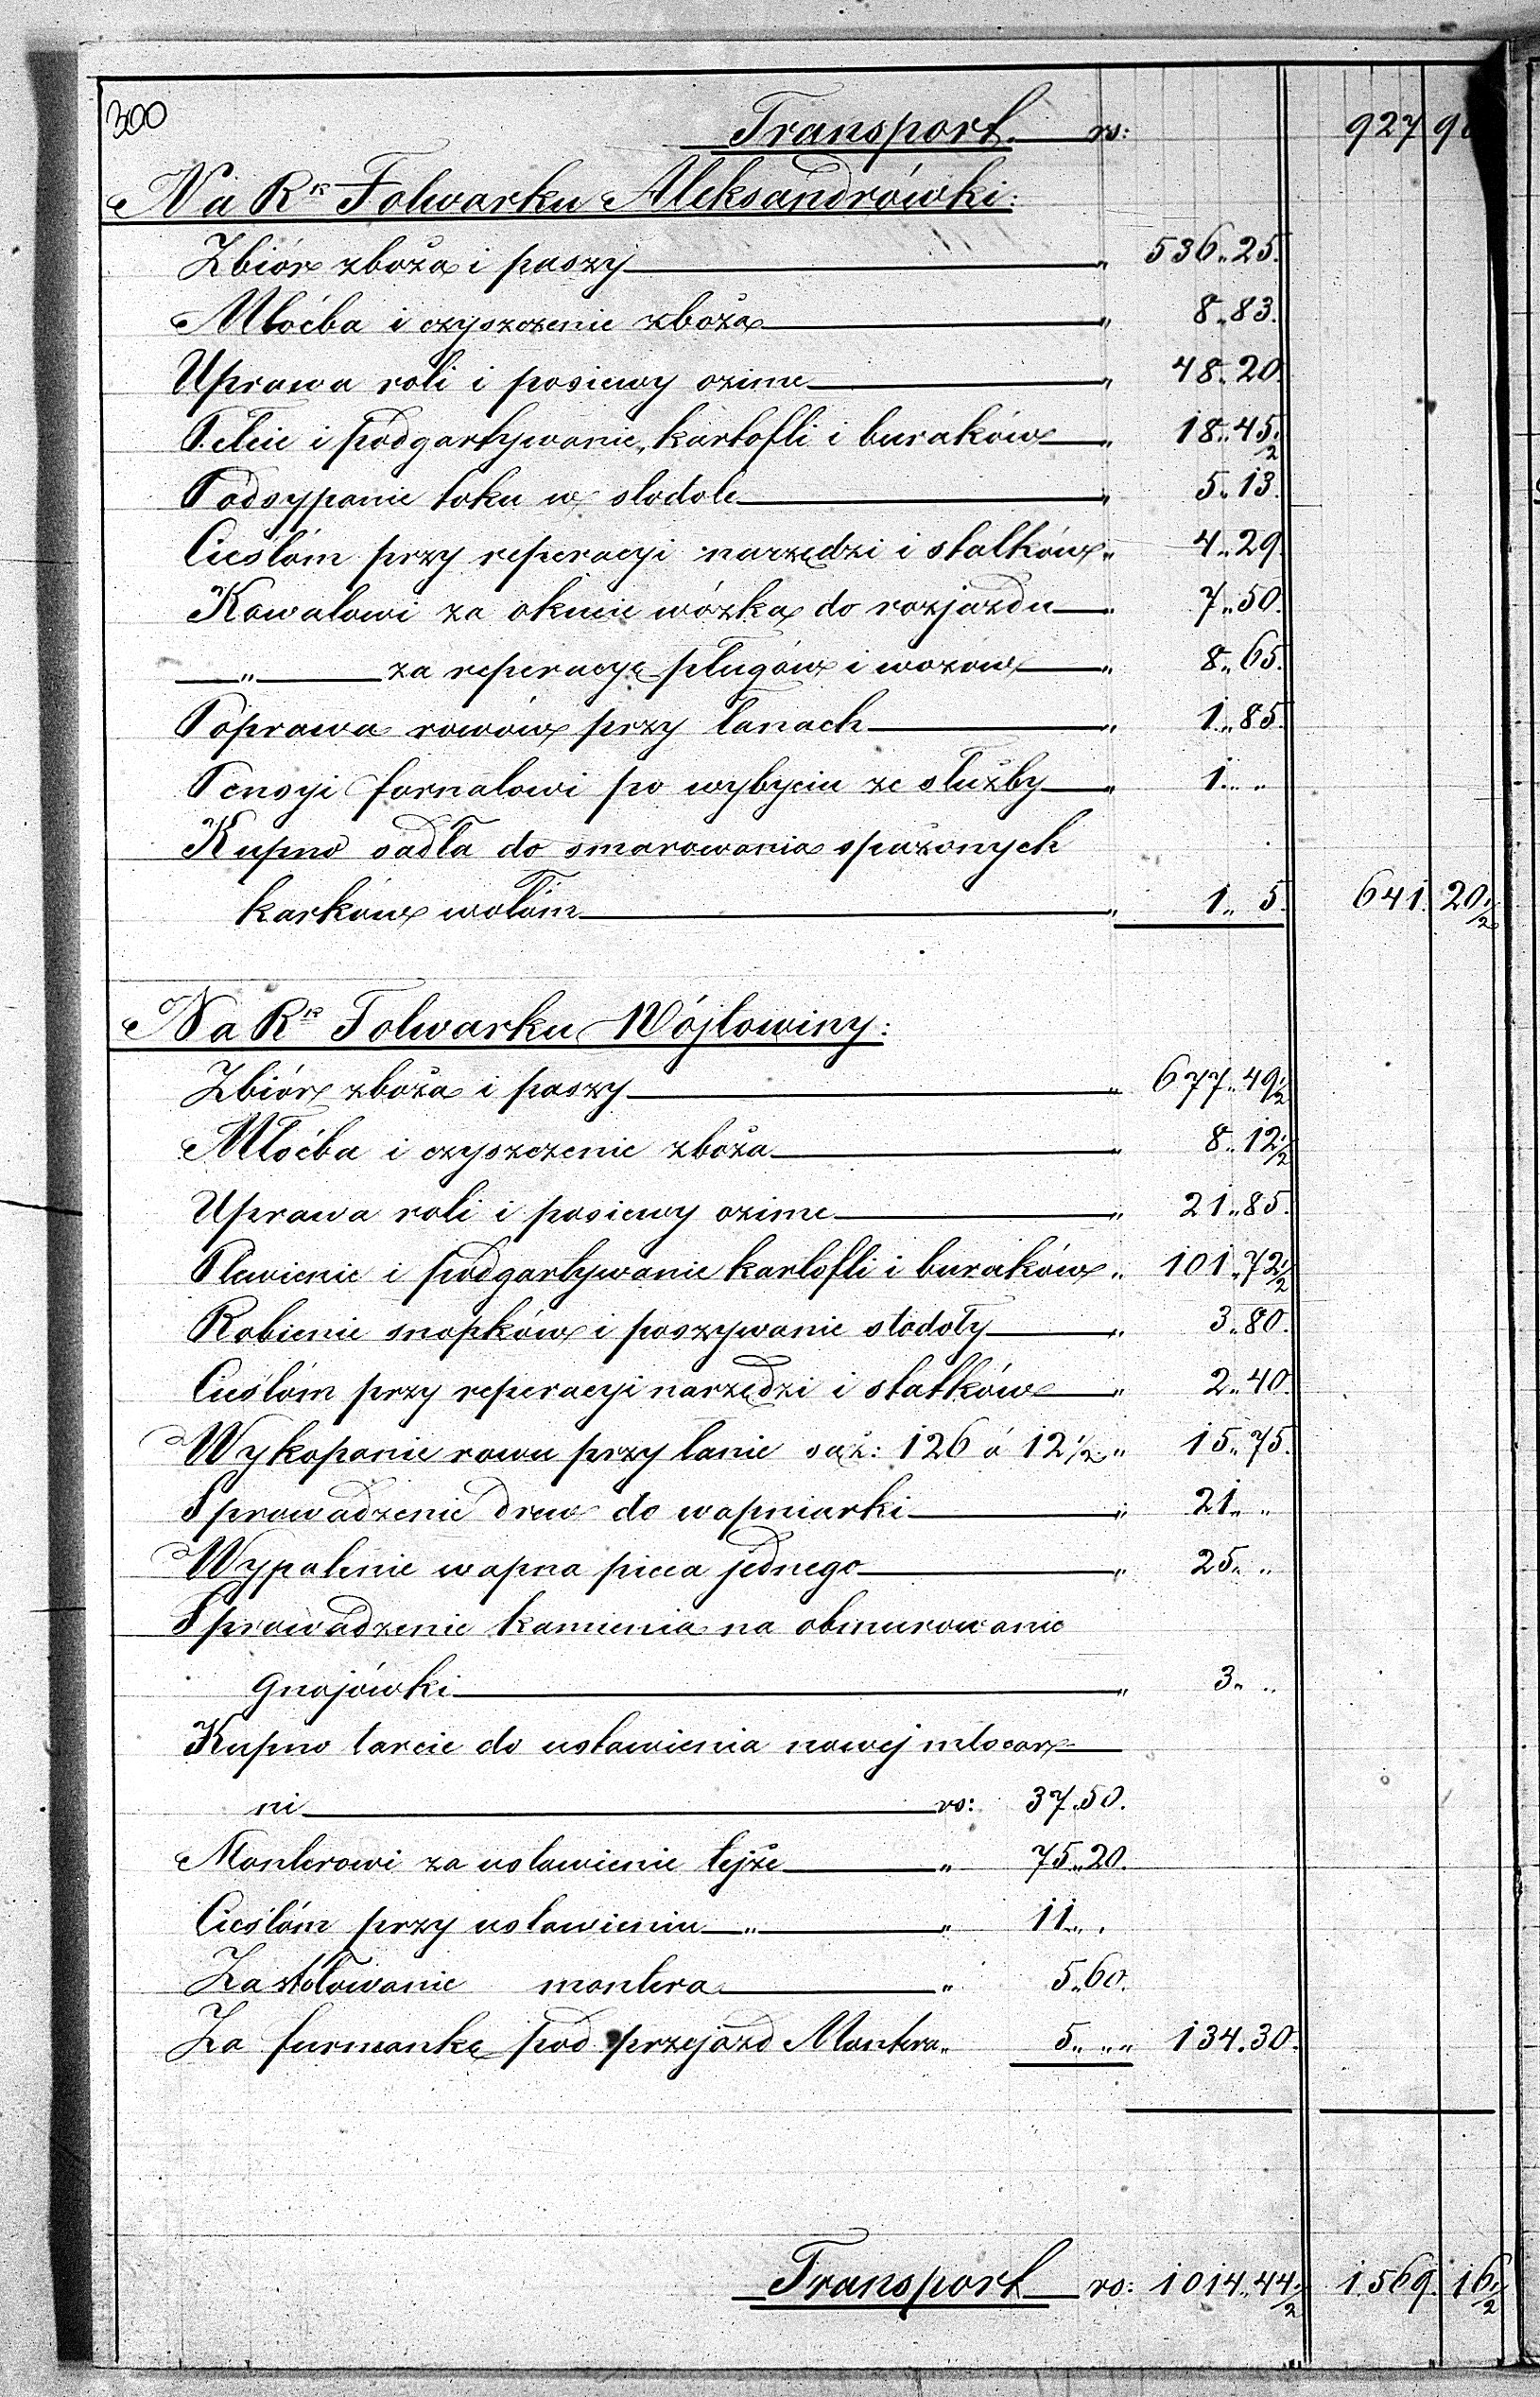 300
Transport rs: 927 96
Na Rk Folwarku Aleksandrówki:
Zbiór zboża i paszy „ 536„25.
Młoćba i czyszczenie zboża „ 8„83.
Uprawa roli i posiewy ozime „ 48„20.
Pelcie i podgartywanie kartofli i buraków „ 18„45½
Podsypanie toku w stodole „ 5„13.
Cieślóm przy reperacyi narzędzi i statków „ 4„29.
Kowalowi za okucie wózka do rozjazdu „ 7„50.
„ za reperacyę pługów i wozów „ 8„65.
Poprawa rowów przy łanach „ 1„85.
Pensyi fornalowi po wybyciu ze służby „ 1„ „
Kupno sadła do smarowania sparzonych
karków wołóm „ 1„ 5. 641. 20½
Na Rk Folwarku Wójtowiny:
Zbiór zboża i paszy „ 677„49½
Młoćba i czyszczenie zboża „ 8„12½
Uprawa roli i posiewy ozime „ 21„85.
Plewienie i podgartywanie kartofli i buraków „ 101„72½
Robienie snopków i poszywanie stodoły „ 3„80.
Cieślóm przy reperacyi narzędzi i statków „ 2„40.
Wykopanie rowu przy łanie saż: 126 á 12½ „ 15„75.
Sprowadzenie drew do wapniarki „ 21„ „
Wypalenie wapna pieca jednego „ 25„ „
Sprowadzenie kamienia na obmurowanie
gnojówki „ 3„ „
Kupno tarcic do ustawienia nowej młocar
ni rs: 37„50.
Monterowi za ustawienie tejże „ 75„20.
Cieślóm przy ustawieniu „ „ 11„ „
Za stołowanie montera „ 5„60.
Za furmankę pod przejazd Montera „ 5„ „ „ 134„30.
Transport rs: 1014„44½ 1569. 16½